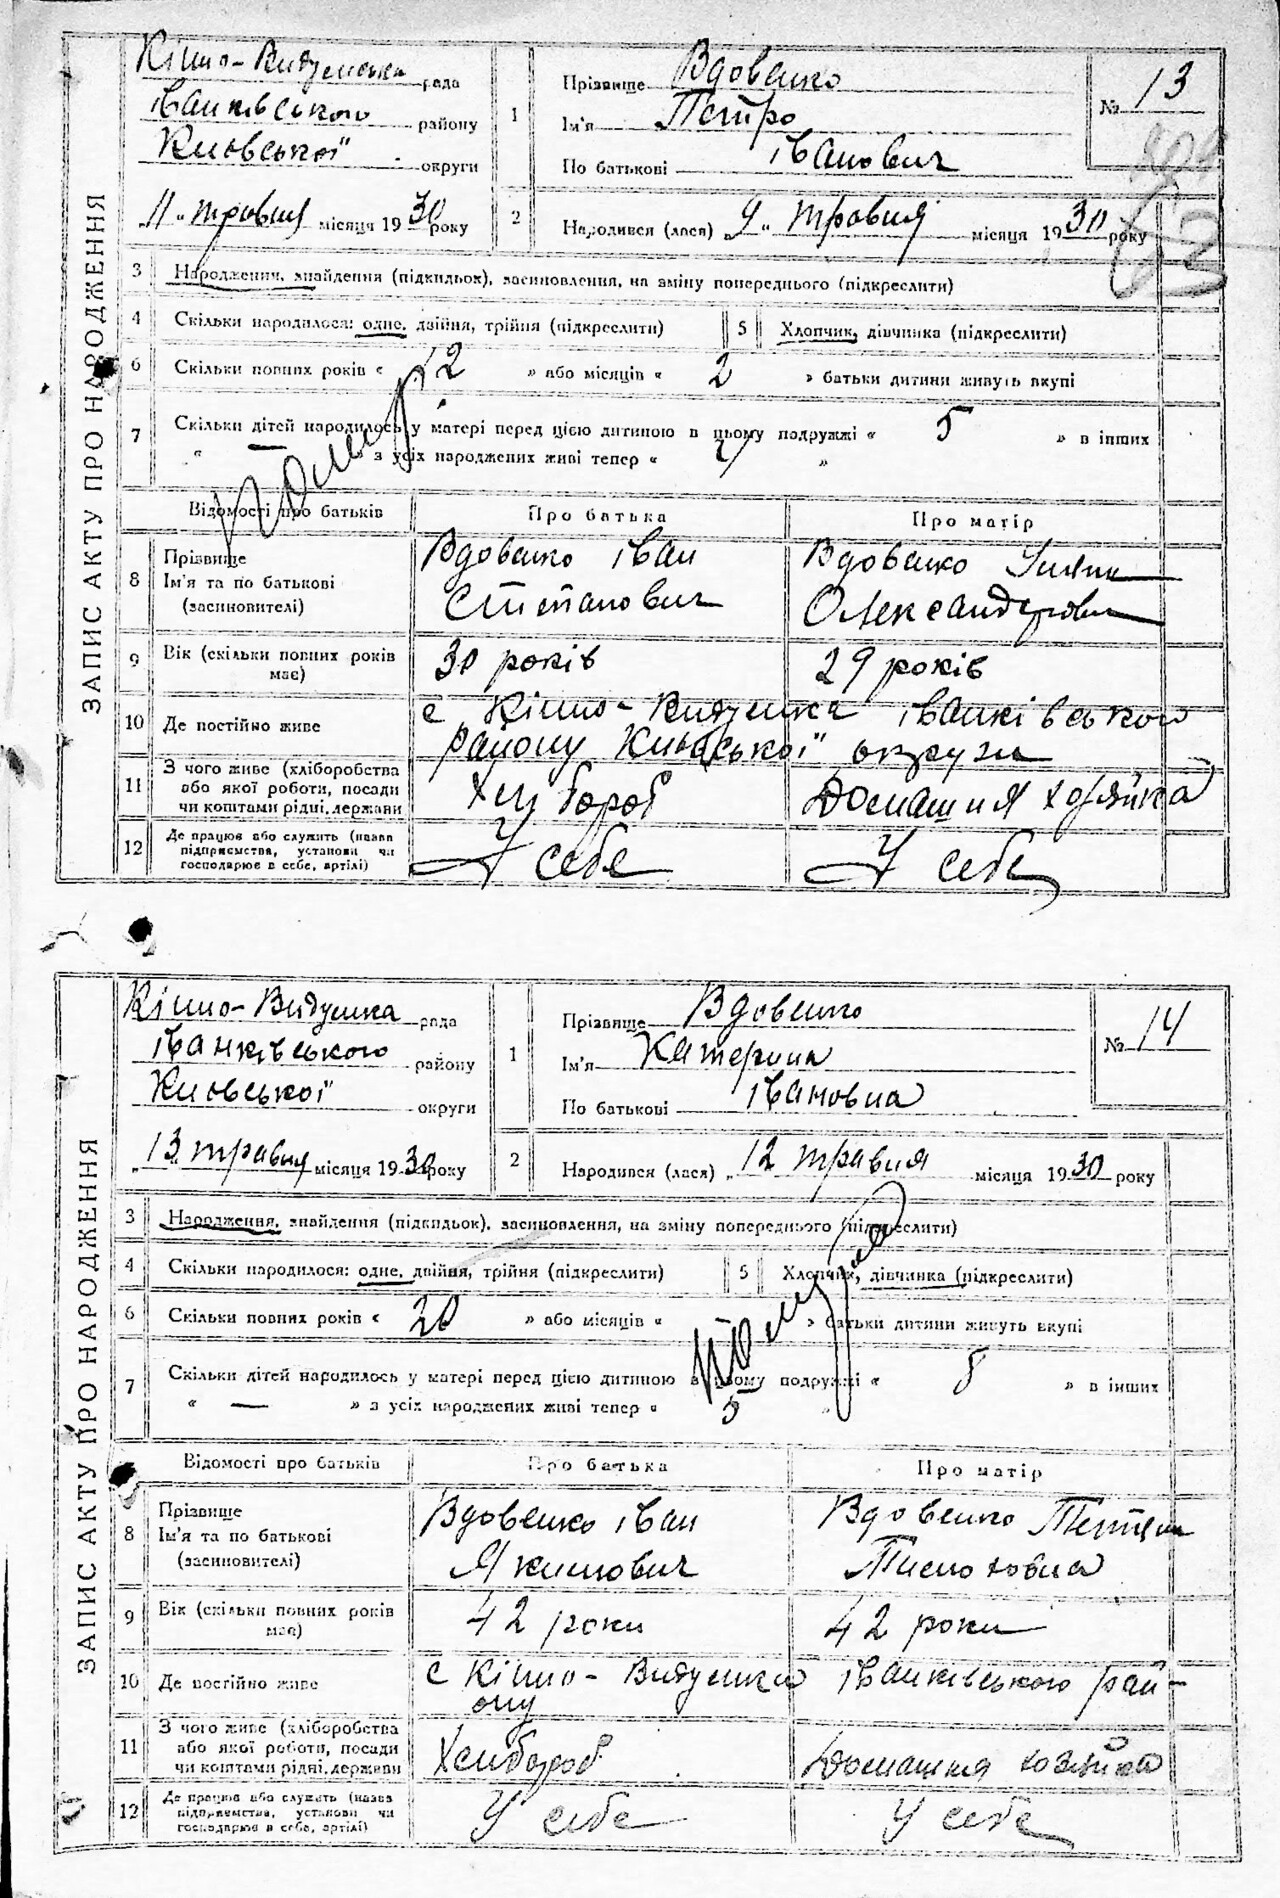 ЗАПИС АКТУ ПРО НАРОДЖЕННЯ
рада
Іванківського району
Київської округи
11 травня місяця 1930 року
1
Прізвище Вдовенко
Ім'я Петро
По батькові Іванович
№ 13
2
Народився (лася) 9 травня місяця 1930 року
3 Народження, знайдення (підкидьок), засиновлення, на зміну попереднього (підкреслити)
4 Скільки народилося: одне, двійня, трійня (підкреслити) 5 Хлопчик, дівчинка (підкреслити)
6 Скільки повних років « 12 » або місяців « 2 » батьки дитини живуть вкупі
7 Скільки дітей народилось у матері перед цією дитиною в цьому подружжі « 5 » в інших
« — з усіх народжених живі тепер « »
Відомості про батьків Про батька Про матір
8 Прізвище
Ім'я та по батькові
(засиновителі)
Вдовенко Іван
Степанович
Вдовенко
9 Вік (скільки повних років має) 30 років 29 років
10 Де постійно живе с Іванківського
району Київської округи
11 З чого живе (хліборобства
або якої роботи, посади
чи коштами рідні, держави
Хлібороб Домашня хозяйка
12 Де працює або служить (назва
підприємства, установи чи
господарює в себе, артілі)
У себе У себе
ЗАПИС АКТУ ПРО НАРОДЖЕННЯ
рада
Іванківського району
Київської округи
13 травня місяця 1930 року
1
Прізвище Вдовенко
Ім'я Катерина
По батькові Івановна
№ 14
2
Народився (лася) 12 травня місяця 1930 року
3 Народження, знайдення (підкидьок), засиновлення, на зміну попереднього (підкреслити)
4 Скільки народилося: одне, двійня, трійня (підкреслити) 5 Хлопчик, дівчинка (підкреслити)
6 Скільки повних років « 20 » або місяців « » батьки дитини живуть вкупі
7 Скільки дітей народилось у матері перед цією дитиною в цьому подружжі « 8 » в інших
« — » з усіх народжених живі тепер « 5 »
Відомості про батьків Про батька Про матір
8 Прізвище
Ім'я та по батькові
(засиновителі)
Вдовенко Іван
Якимович
Вдовенко
9 Вік (скільки повних років має) 42 роки 42 роки
10 Де постійно живе с Іванківського рай-
ону
11 З чого живе (хліборобства
або якої роботи, посади
чи коштами рідні, держави
Хлібороб Домашня
12 Де працює або служить (назва
підприємства, установи чи
господарює в себе, артілі)
У себе У себе